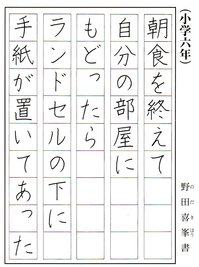 (小学六年)
朝食を終えて
自分の部屋に
もどったら
ランドセルの下に
手紙が置いてあった
野田喜峯書
のだきほう